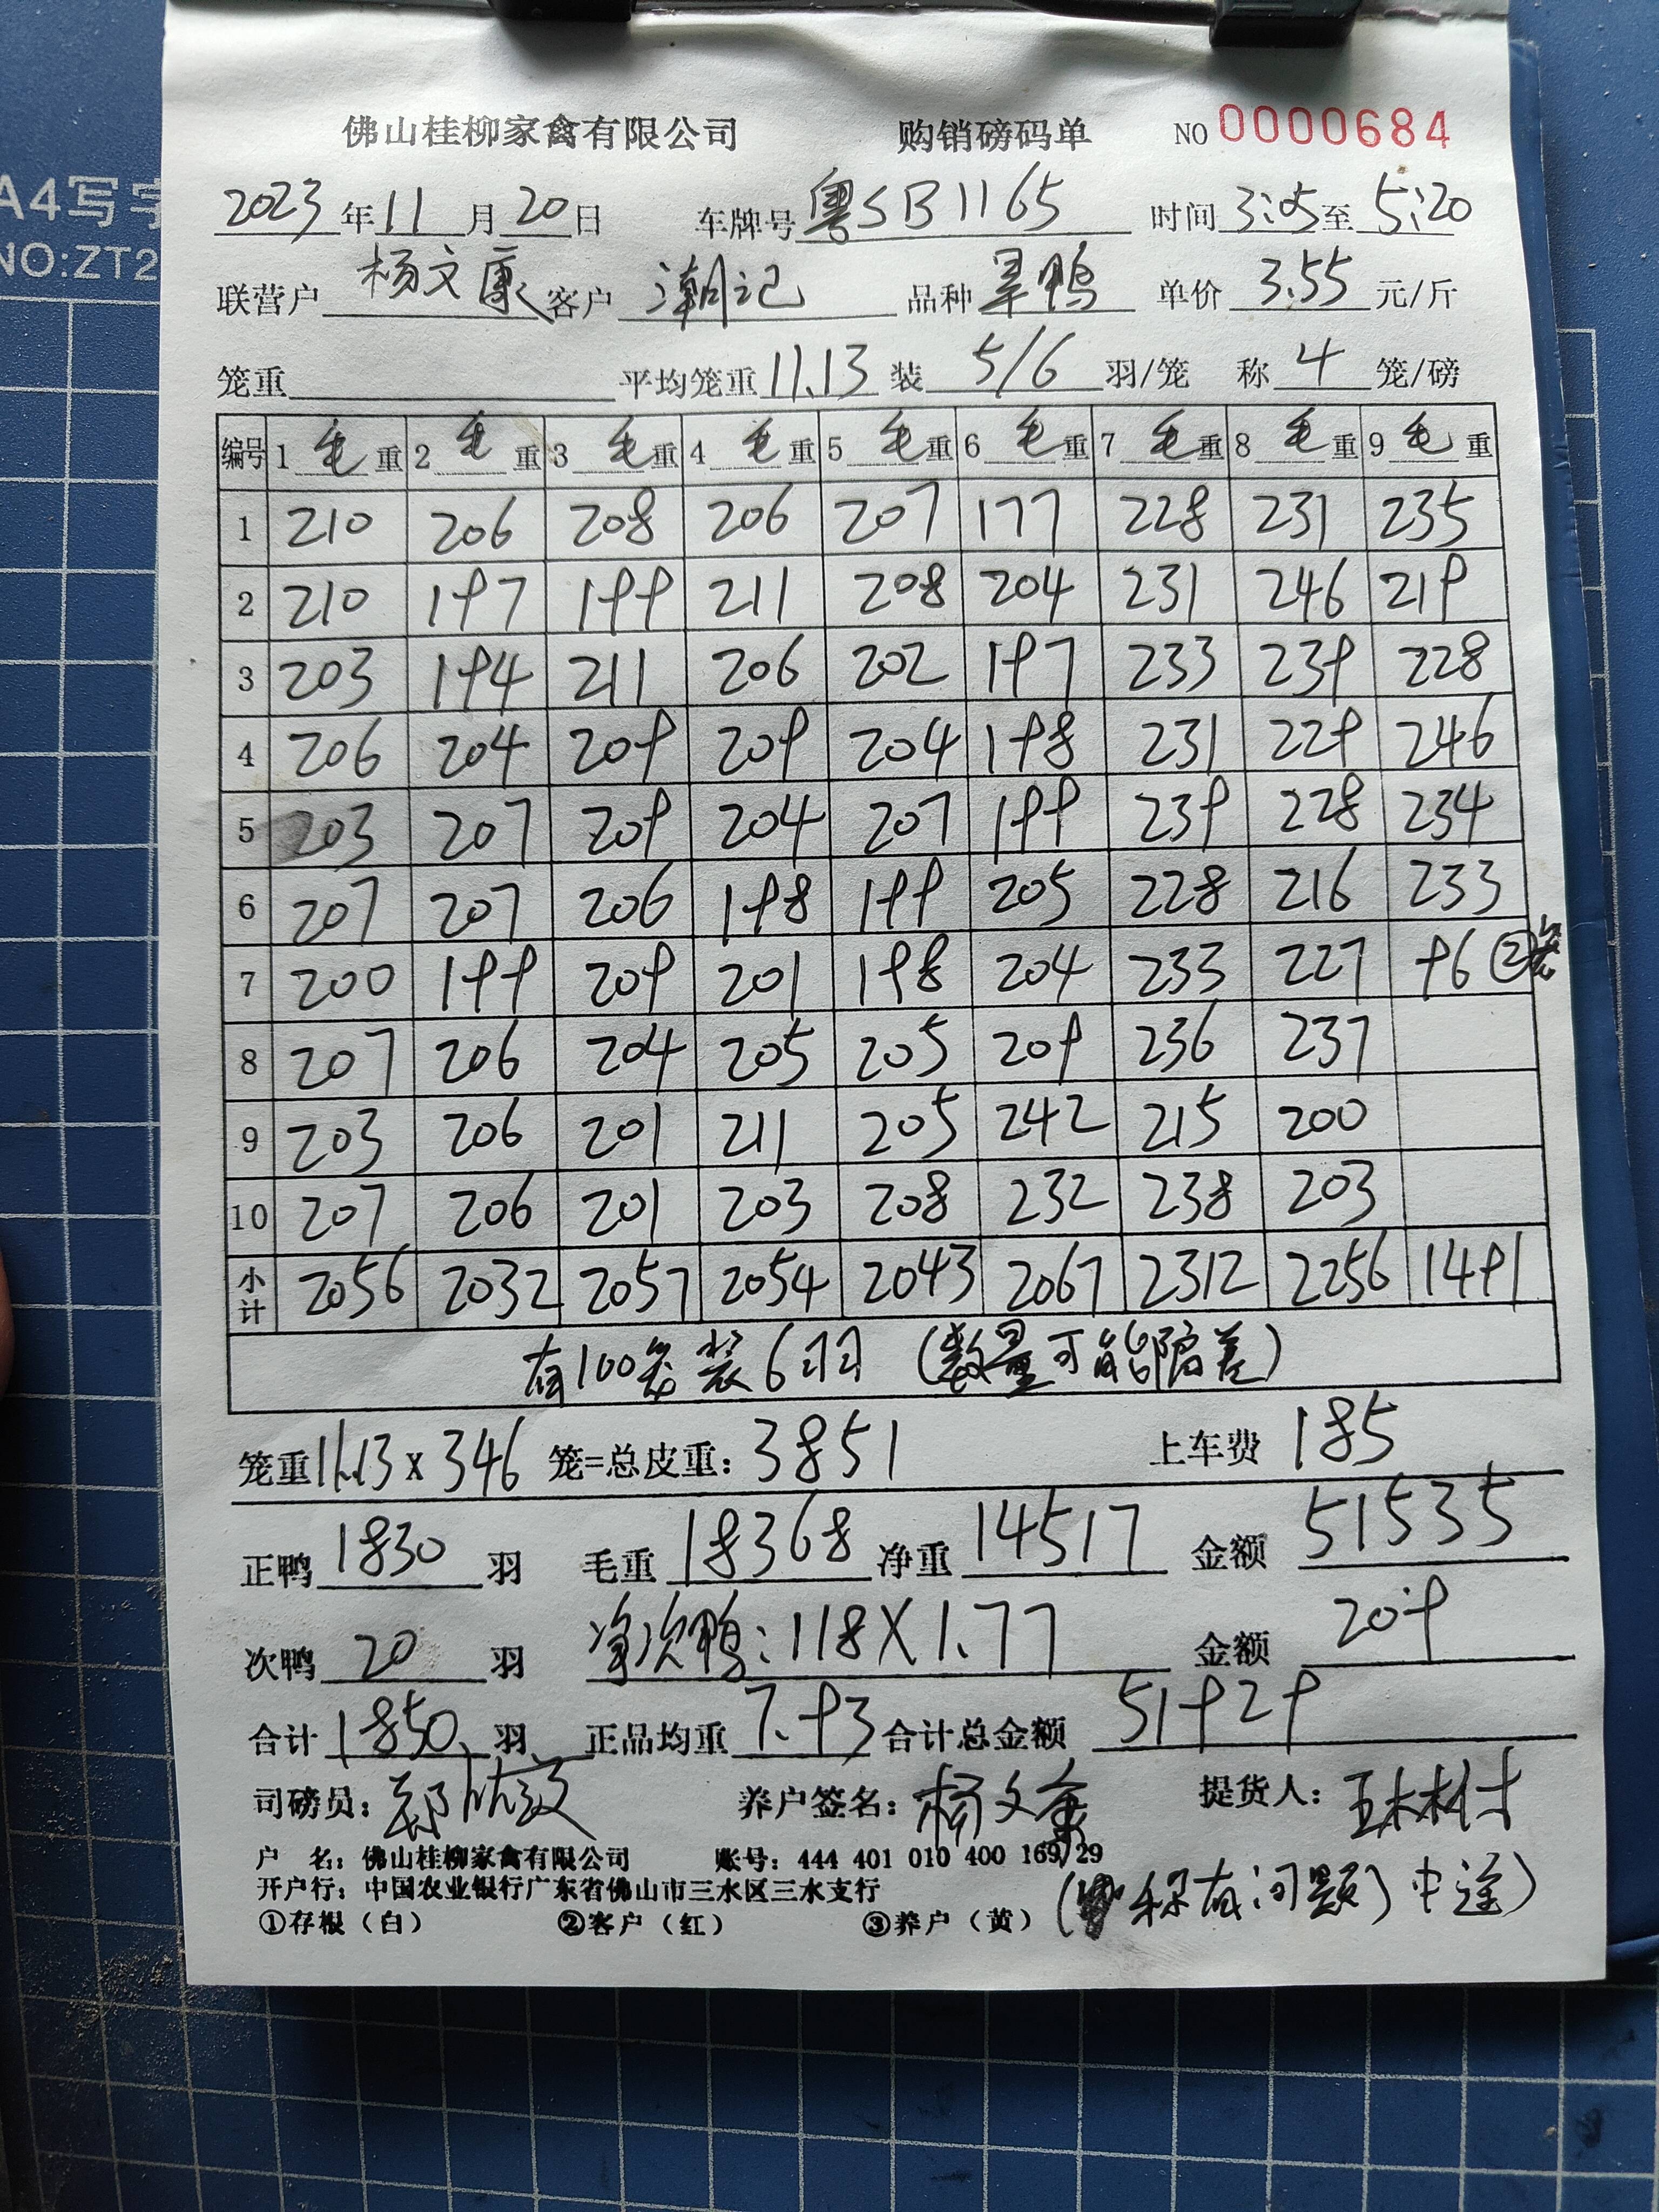 A4写字
NO:ZT2
佛山桂柳家禽有限公司 购销磅码单 NO 0000684
2023年11月20日 车牌号 粤SB1165 时间 3:05至5:20
联营户 杨文康 客户 潮记 品种 旱鸭 单价 3.55 元/斤
笼重 平均笼重 11.13 装 5/6 羽/笼 称 4 笼/磅
编号 1 毛重 2 毛重 3 毛重 4 毛重 5 毛重 6 毛重 7 毛重 8 毛重 9 毛重
1 210 206 208 206 207 177 228 231 235
2 210 197 199 211 208 204 231 246 219
3 203 194 211 206 202 197 233 239 228
4 206 204 209 209 204 198 231 229 246
5 203 207 209 204 207 199 239 228 234
6 207 207 206 198 199 205 228 216 233
7 200 199 209 201 198 204 233 227 96 ②笼
8 207 206 204 205 205 209 236 237
9 203 206 201 211 205 242 215 200
10 207 206 201 203 208 232 238 203
小计 2056 2032 2057 2054 2043 2067 2312 2256 1491
有100笼装6羽 (数量可能偏差)
笼重 11.13 x 346 笼=总皮重: 3851 上车费 185
正鸭 1830 羽 毛重 18368 净重 14517 金额 51535
次鸭 20 羽 净次鸭: 118 X 1.77 金额 209
合计 1850 羽 正品均重 7.93 合计总金额 51929
司磅员: 养户签名: 杨文 提货人:
户 名: 佛山桂柳家禽有限公司 账号: 444 401 010 400 169/29
开户行: 中国农业银行广东省佛山市三水区三水支行
①存根 (白) ②客户 (红) ③养户 (黄) (称有问题) 中途)